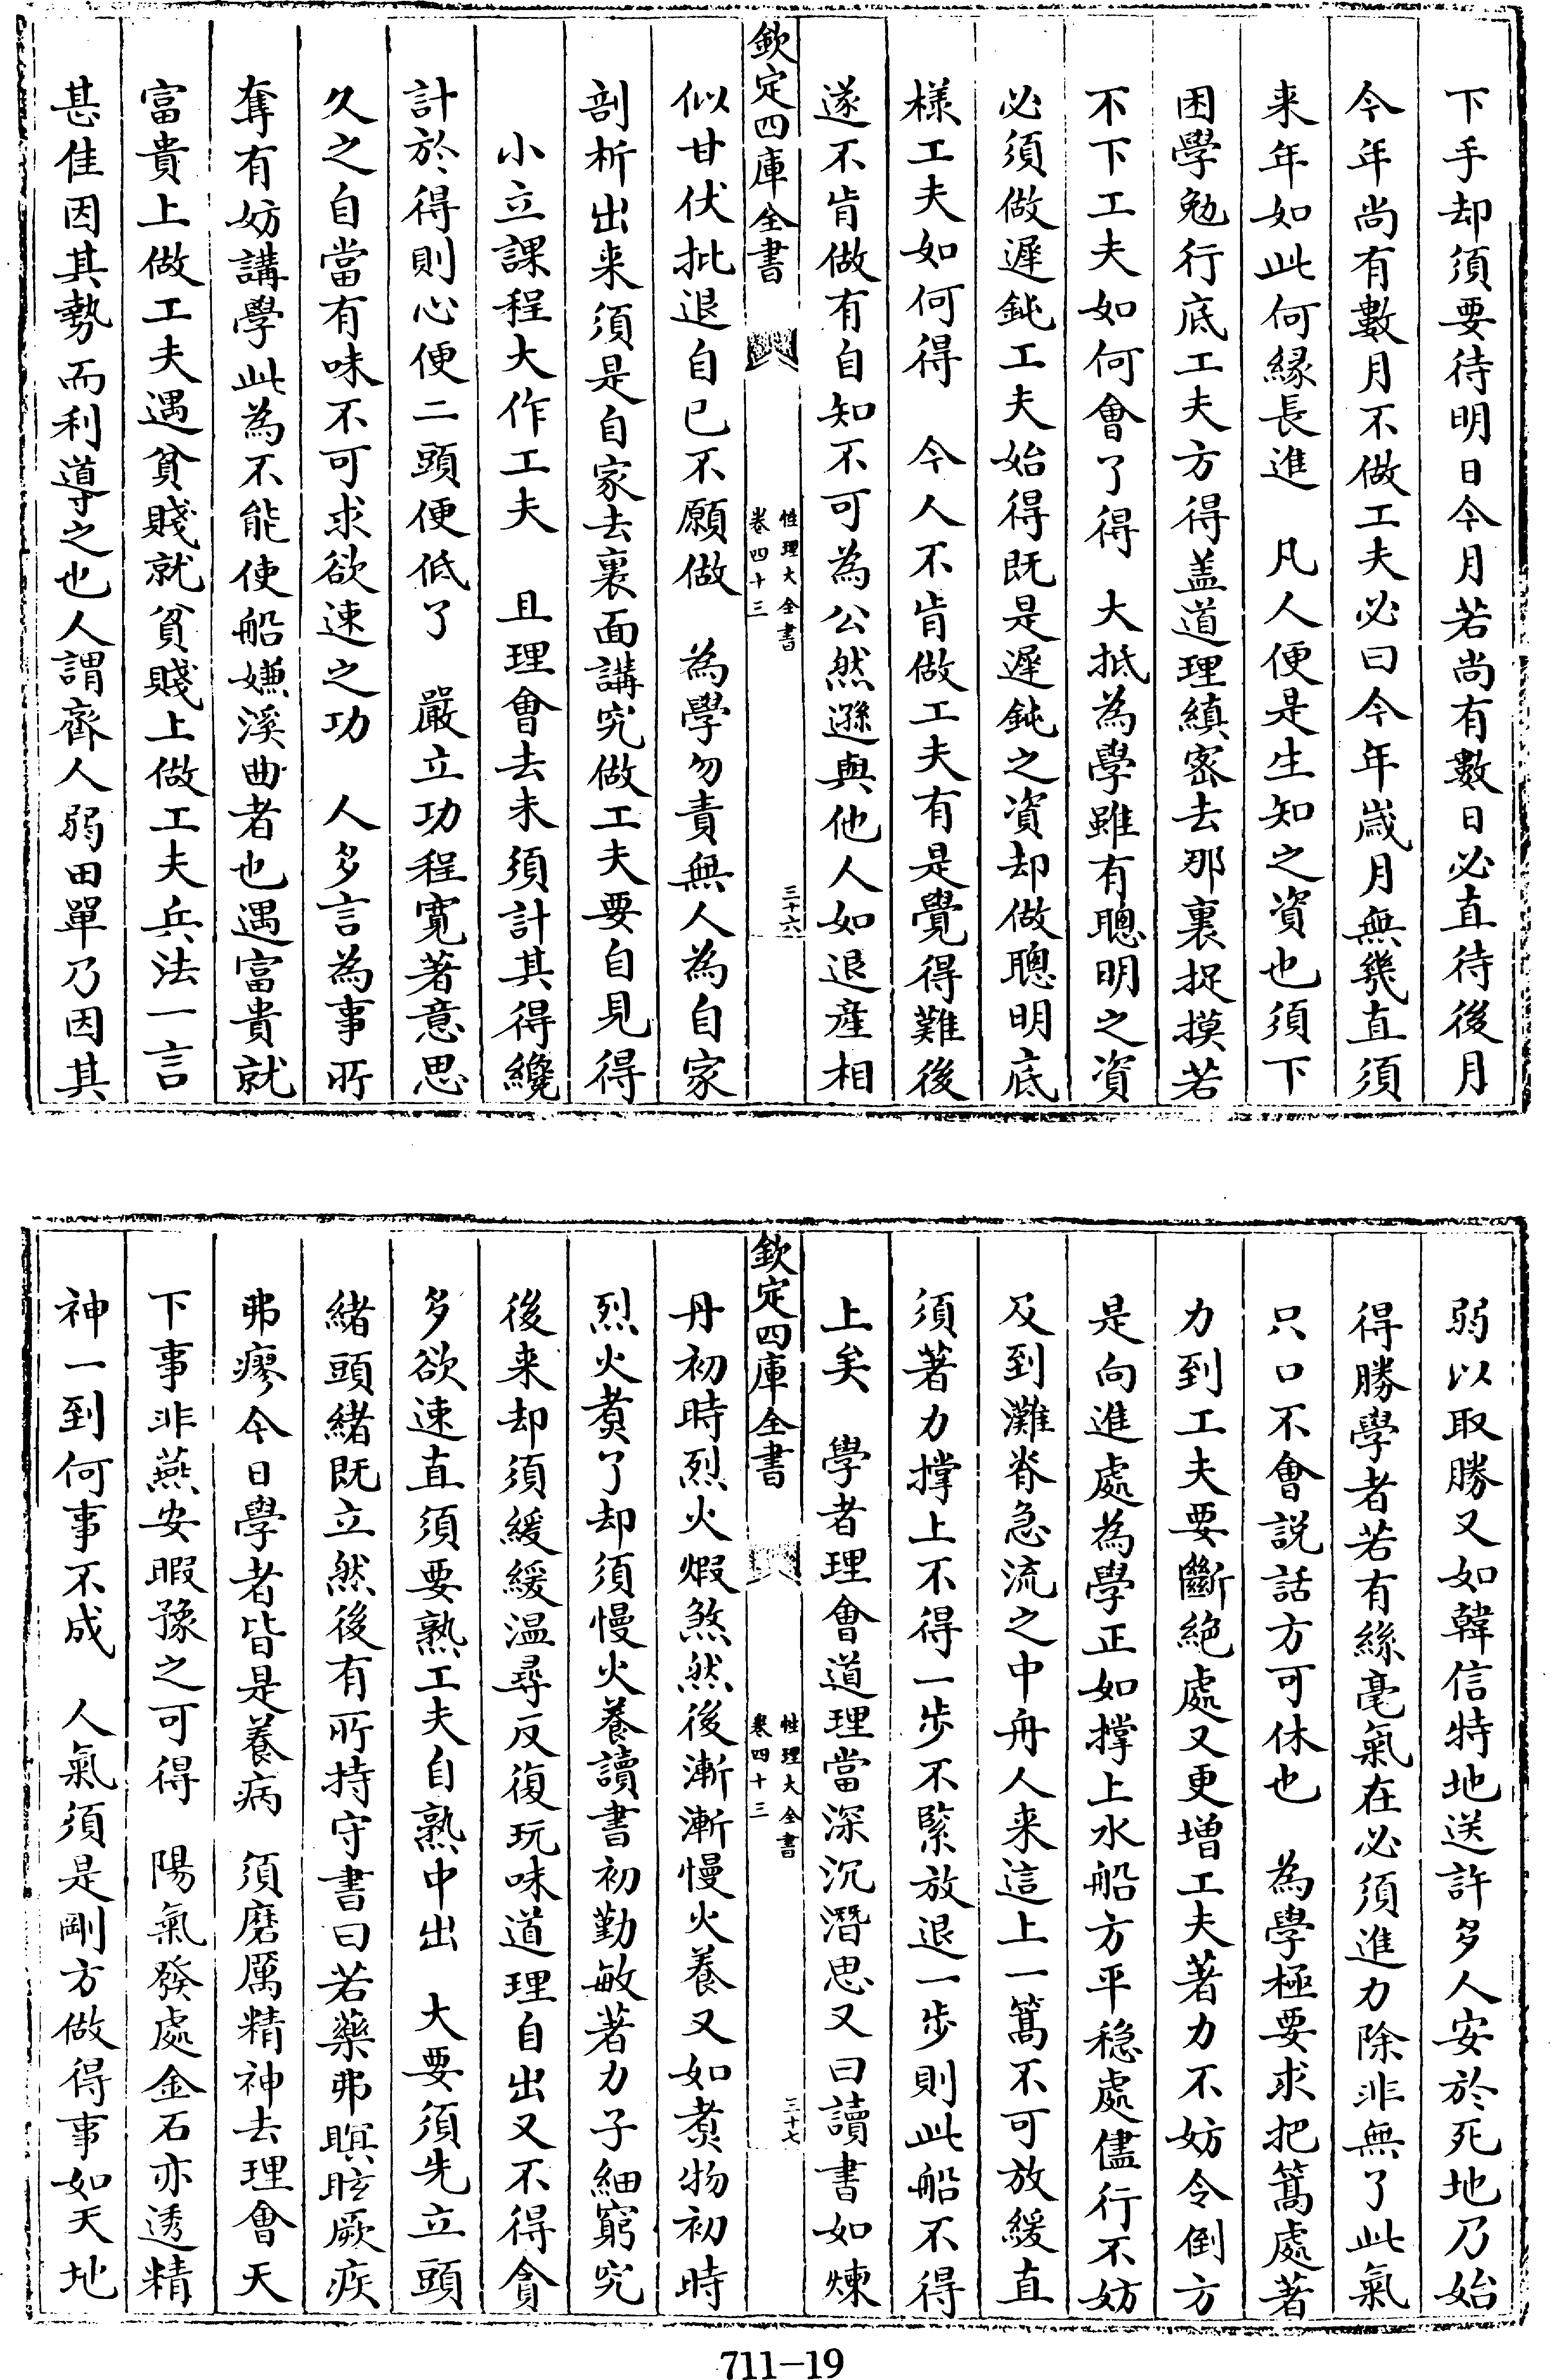 下手却須要待明日今月若尚有數日必直待後月
今年尚有數月不做工夫必曰今年歲月無幾直須
来年如此何縁長進　凡人便是生知之資也須下
困學勉行底工夫方得盖道理縝宻去那裏捉摸若
不下工夫如何會了得　大抵為學雖有聰明之資
必須做遲鈍工夫始得既是遲鈍之資却做聰明底
様工夫如何得　今人不肯做工夫有是覺得難後
遂不肯做有自知不可為公然遜與他人如退産相
欽定四庫全書
性理大全書
卷四十三
三十六
似甘伏批退自已不願做　為學勿責無人為自家
剖析出来須是自家去裏面講究做工夫要自見得
小立課程大作工夫　且理會去未須計其得纔
計於得則心便二頭便低了　嚴立功程寛著意思
久之自當有味不可求欲速之功　人多言為事所
奪有妨講學此為不能使船嫌溪曲者也遇富貴就
富貴上做工夫遇貧賤就貧賤上做工夫兵法一言
甚佳因其勢而利導之也人謂齊人弱田單乃因其
弱以取勝又如韓信特地送許多人安於死地乃始
得勝學者若有絲毫氣在必須進力除非無了此氣
只口不會説話方可休也　為學極要求把篙處著
力到工夫要斷絶處又更增工夫著力不妨令倒方
是向進處為學正如撑上水船方平穏處儘行不妨
及到灘脊急流之中舟人来這上一篙不可放緩直
須著力撑上不得一步不緊放退一步則此船不得
上矣　學者理會道理當深沉潛思又曰讀書如煉
欽定四庫全書
性理大全書
卷四十三
三十七
丹初時烈火煆煞然後漸漸慢火養又如煑物初時
烈火煑了却須慢火養讀書初勤敏著力子細窮究
後来却須緩緩温尋反復玩味道理自出又不得貪
多欲速直須要熟工夫自熟中出　大要須先立頭
緒頭緒既立然後有所持守書曰若藥弗瞑眩厥疾
弗瘳今日學者皆是養病　須磨厲精神去理會天
下事非燕安暇豫之可得　陽氣發處金石亦透精
神一到何事不成　人氣須是剛方做得事如天地
711-19